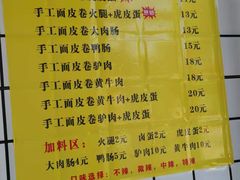 手工面皮卷火腿+虎皮蛋 13元
手工面皮卷大肉肠 13元
手工面皮卷鸭肠 15元
手工面皮卷驴肉 18元
手工面皮卷黄牛肉 18元
手工面皮卷驴肉+虎皮蛋 20元
手工面皮卷黄牛肉+虎皮蛋 20元
加料区: 火腿2元 卤蛋2元 虎皮蛋2元
大肉肠4元 鸭肠5元 驴肉10元 黄牛肉10元
口味选择: 不辣、微辣、中辣、特辣